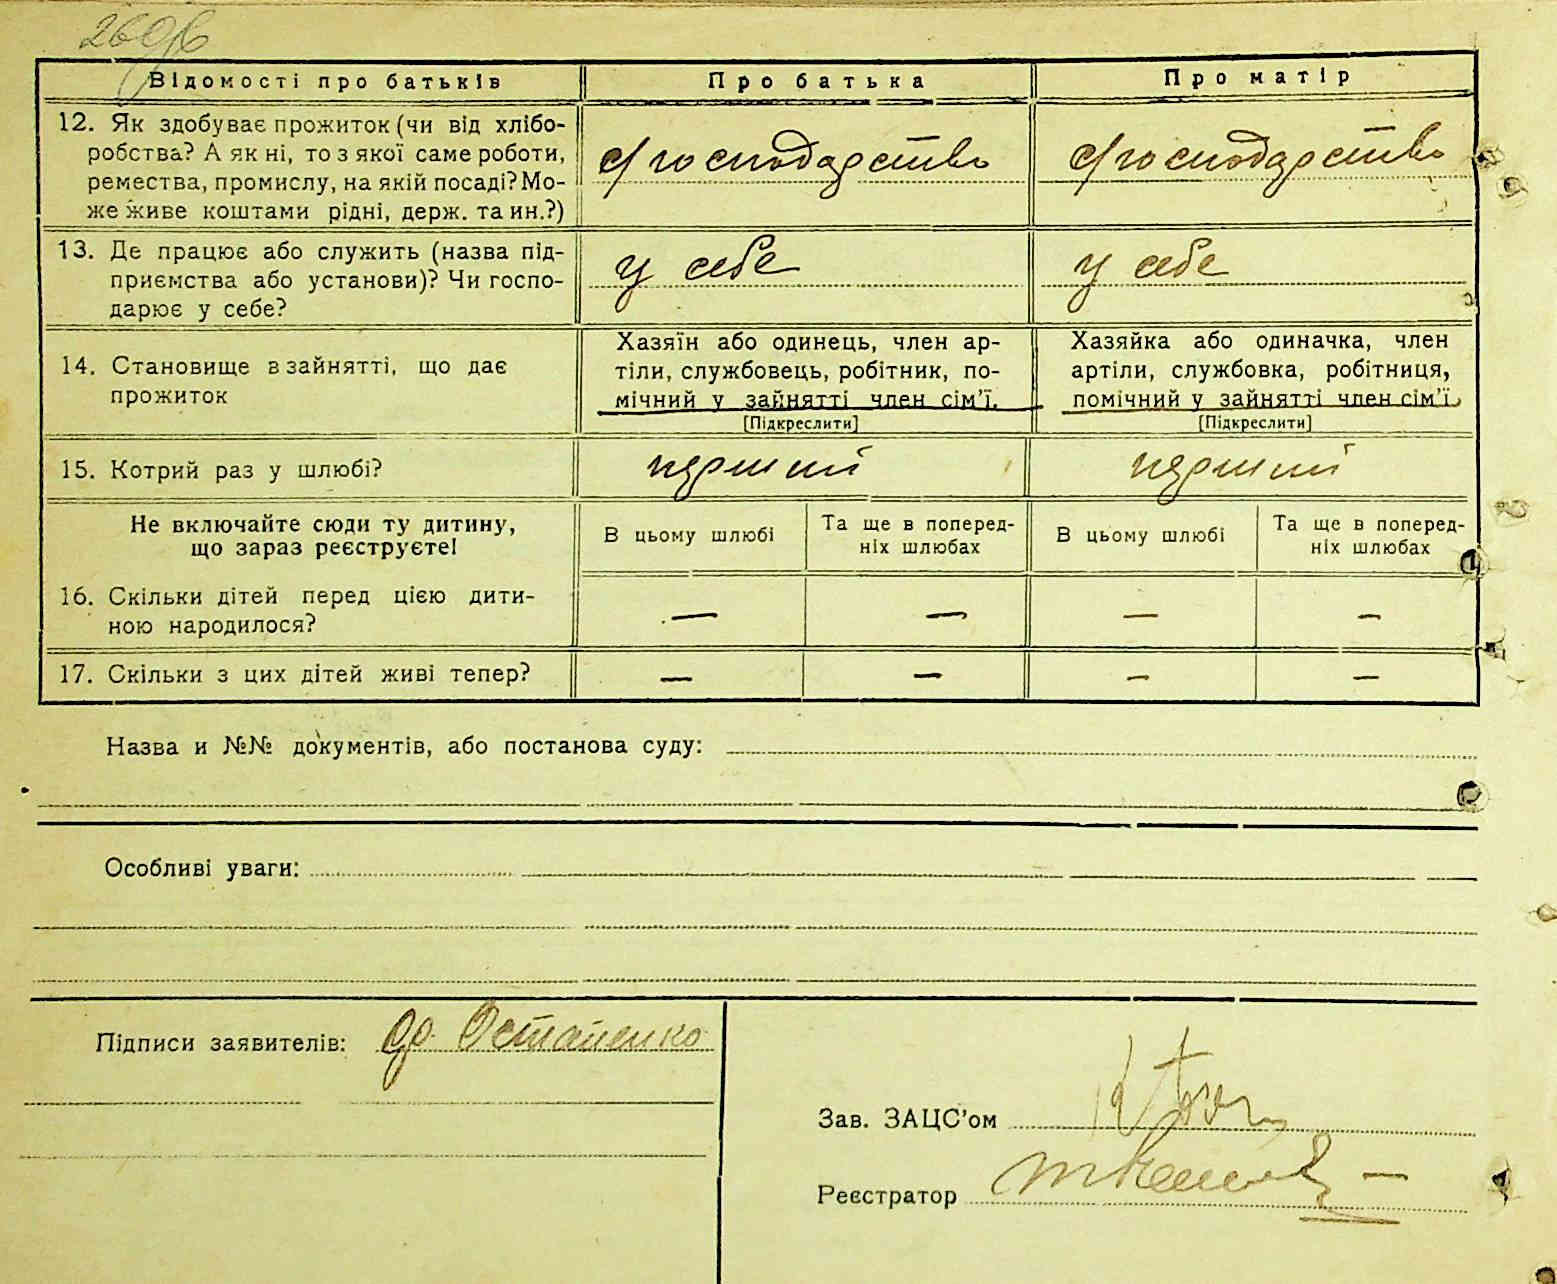 Відомості про батьків
Про батька
Про матір
12. Як здобуває прожиток (чи від хлібо-
робства? А як ні, то з якої саме роботи,
ремества, промислу, на якій посаді? Мо-
же живе коштами рідні, держ. та ин.?)
с/господарство
с/господарство
13. Де працює або служить (назва під-
приємства або установи)? Чи госпо-
дарює у себе?
у себе
у себе
14. Становище в зайнятті, що дає
прожиток
Хазяїн або одинець, член ар-
тіли, службовець, робітник, по-
мічний у зайнятті член сім'ї.
[Підкреслити]
Хазяйка або одиначка, член
артіли, службовка, робітниця,
помічний у зайнятті член сім'ї.
[Підкреслити]
15. Котрий раз у шлюбі?
перший
перший
Не включайте сюди ту дитину,
що зараз реєструєте!
В цьому шлюбі
Та ще в поперед-
ніх шлюбах
В цьому шлюбі
Та ще в поперед-
ніх шлюбах
16. Скільки дітей перед цією дити-
ною народилося?
— — — —
17. Скільки з цих дітей живі тепер?
— — — —
Назва и №№ документів, або постанова суду:
Особливі уваги:
Підписи заявителів: Остапенко
Зав. ЗАЦС'ом
Реєстратор